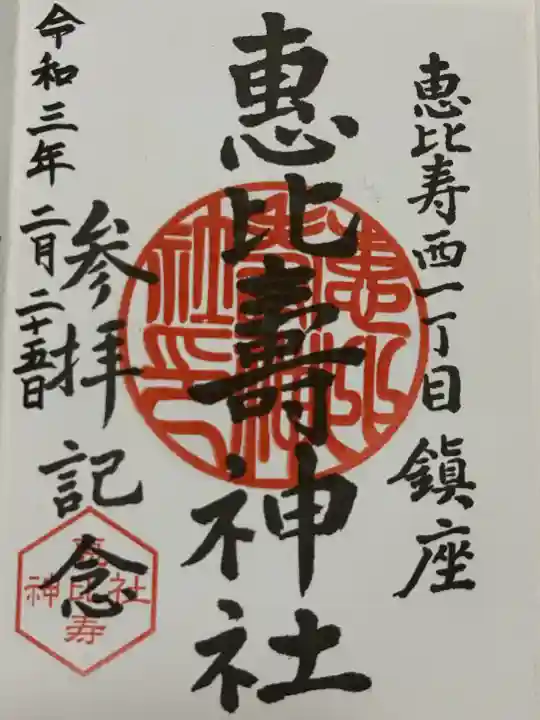 恵比寿西一丁目 鎮座
恵比壽神社
参拝記念
令和三年 二月二十五日
恵比寿
神社